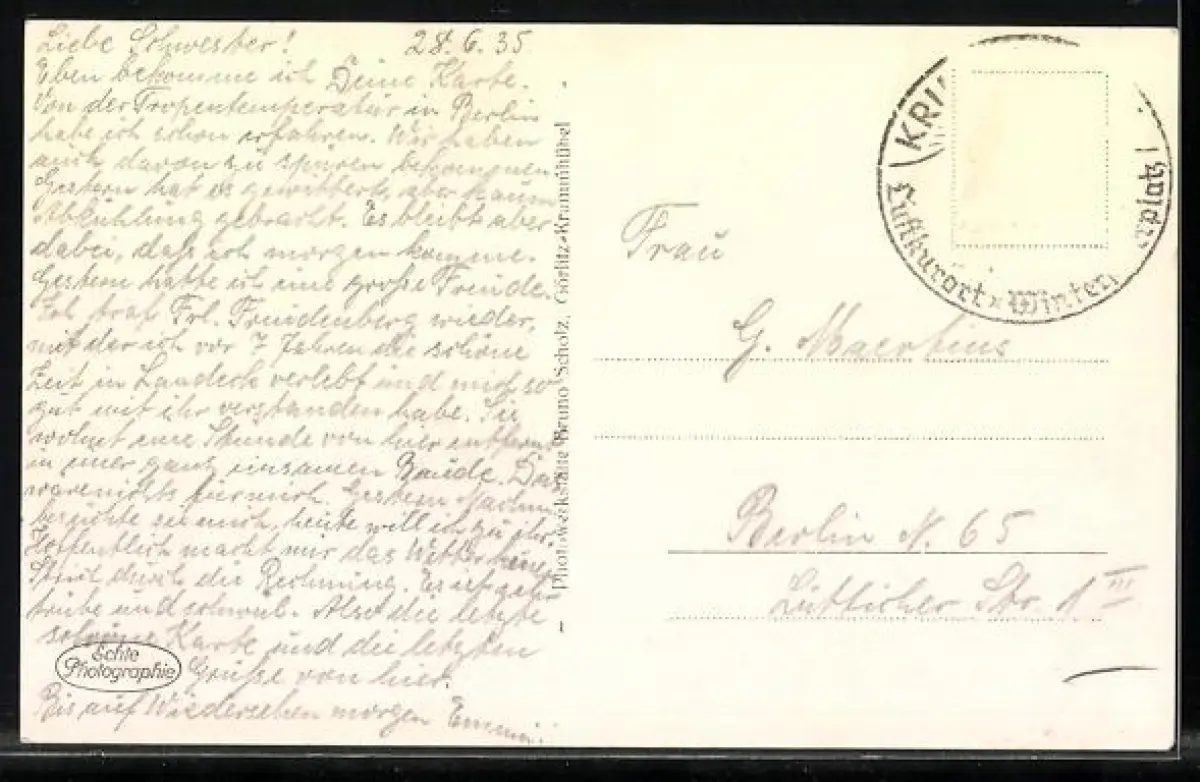 Liebe Schwester! 28.6.35
Eben bekomme ich Deine Karte.
Von der Tropentemperatur in Berlin
habe ich schon erfahren. Wir haben
auch davon zu
Gestern hat es aber kaum
Abkühlung gebracht. Es bleibt aber
dabei, daß ich morgen komme.
Gestern hatte ich eine große Freude.
Ich traf Frl. Freudenberg wieder,
mit der ich vor 7 Jahren die schöne
Zeit in Landeck verlebt und mich so
gut mit ihr verstanden habe. Sie
wohnt eine Stunde von hier entfernt
in einer ganz einsamen Baude. Das
wäre nichts für mich. Gestern Nachm.
besuchte sie mich, heute will ich zu ihr.
Hoffentlich macht mir das Wetter keinen
Strich durch die Rechnung. Es ist sehr
trübe und schwül. Also die letzte
schöne Karte und die letzten
Grüße von hier.
Bis auf Wiedersehen morgen Emmi.
Echte
Photographie
Photo-Werkstätte Bruno Scholz, Görlitz-Krummhübel
KRU
Luftkurort * Winter
rplatz!
Frau
G.
Berlin N. 65
Lütticher Str. 1 III